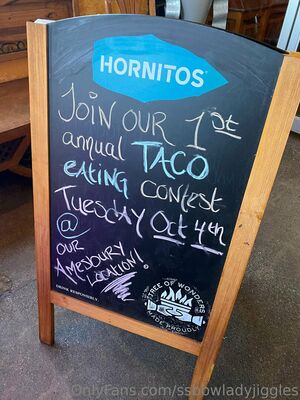 HORNITOS
JOIN OUR 1st
annual TACO
eating contest
Tuesday Oct 4th
@
our
Amesbury
Location!
DRINK RESPONSIBLY.
TREE OF WONDERS
MADE PROUDLY
OnlyFans.com/ssbbwladyjiggles